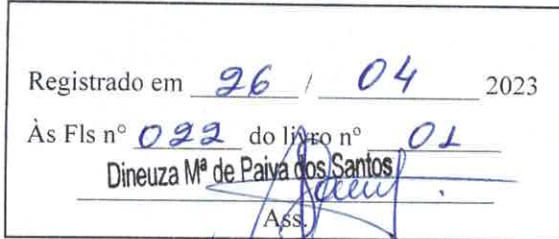 Registrado em 26 / 04 2023
Às Fls n° 022 do livro n° 01
Dineuza Mª de Paiva dos Santos
Ass.